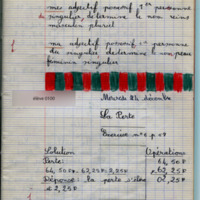 mes adjectif possessif 1ère personne
du singulier, détermine le nom reins
masculin pluriel
1 ma adjectif possessif 1e personne
du singulier détermine le nom peau
féminin singulier
Mercredi 24 décembre
La Perte
Exercice n°2 p 49
Solution Opérations
Perte: 64,50F
64,50F - 62,25F = 2,25F - 62,25
Réponse: la perte s'élève 02,25F
à 2,25F